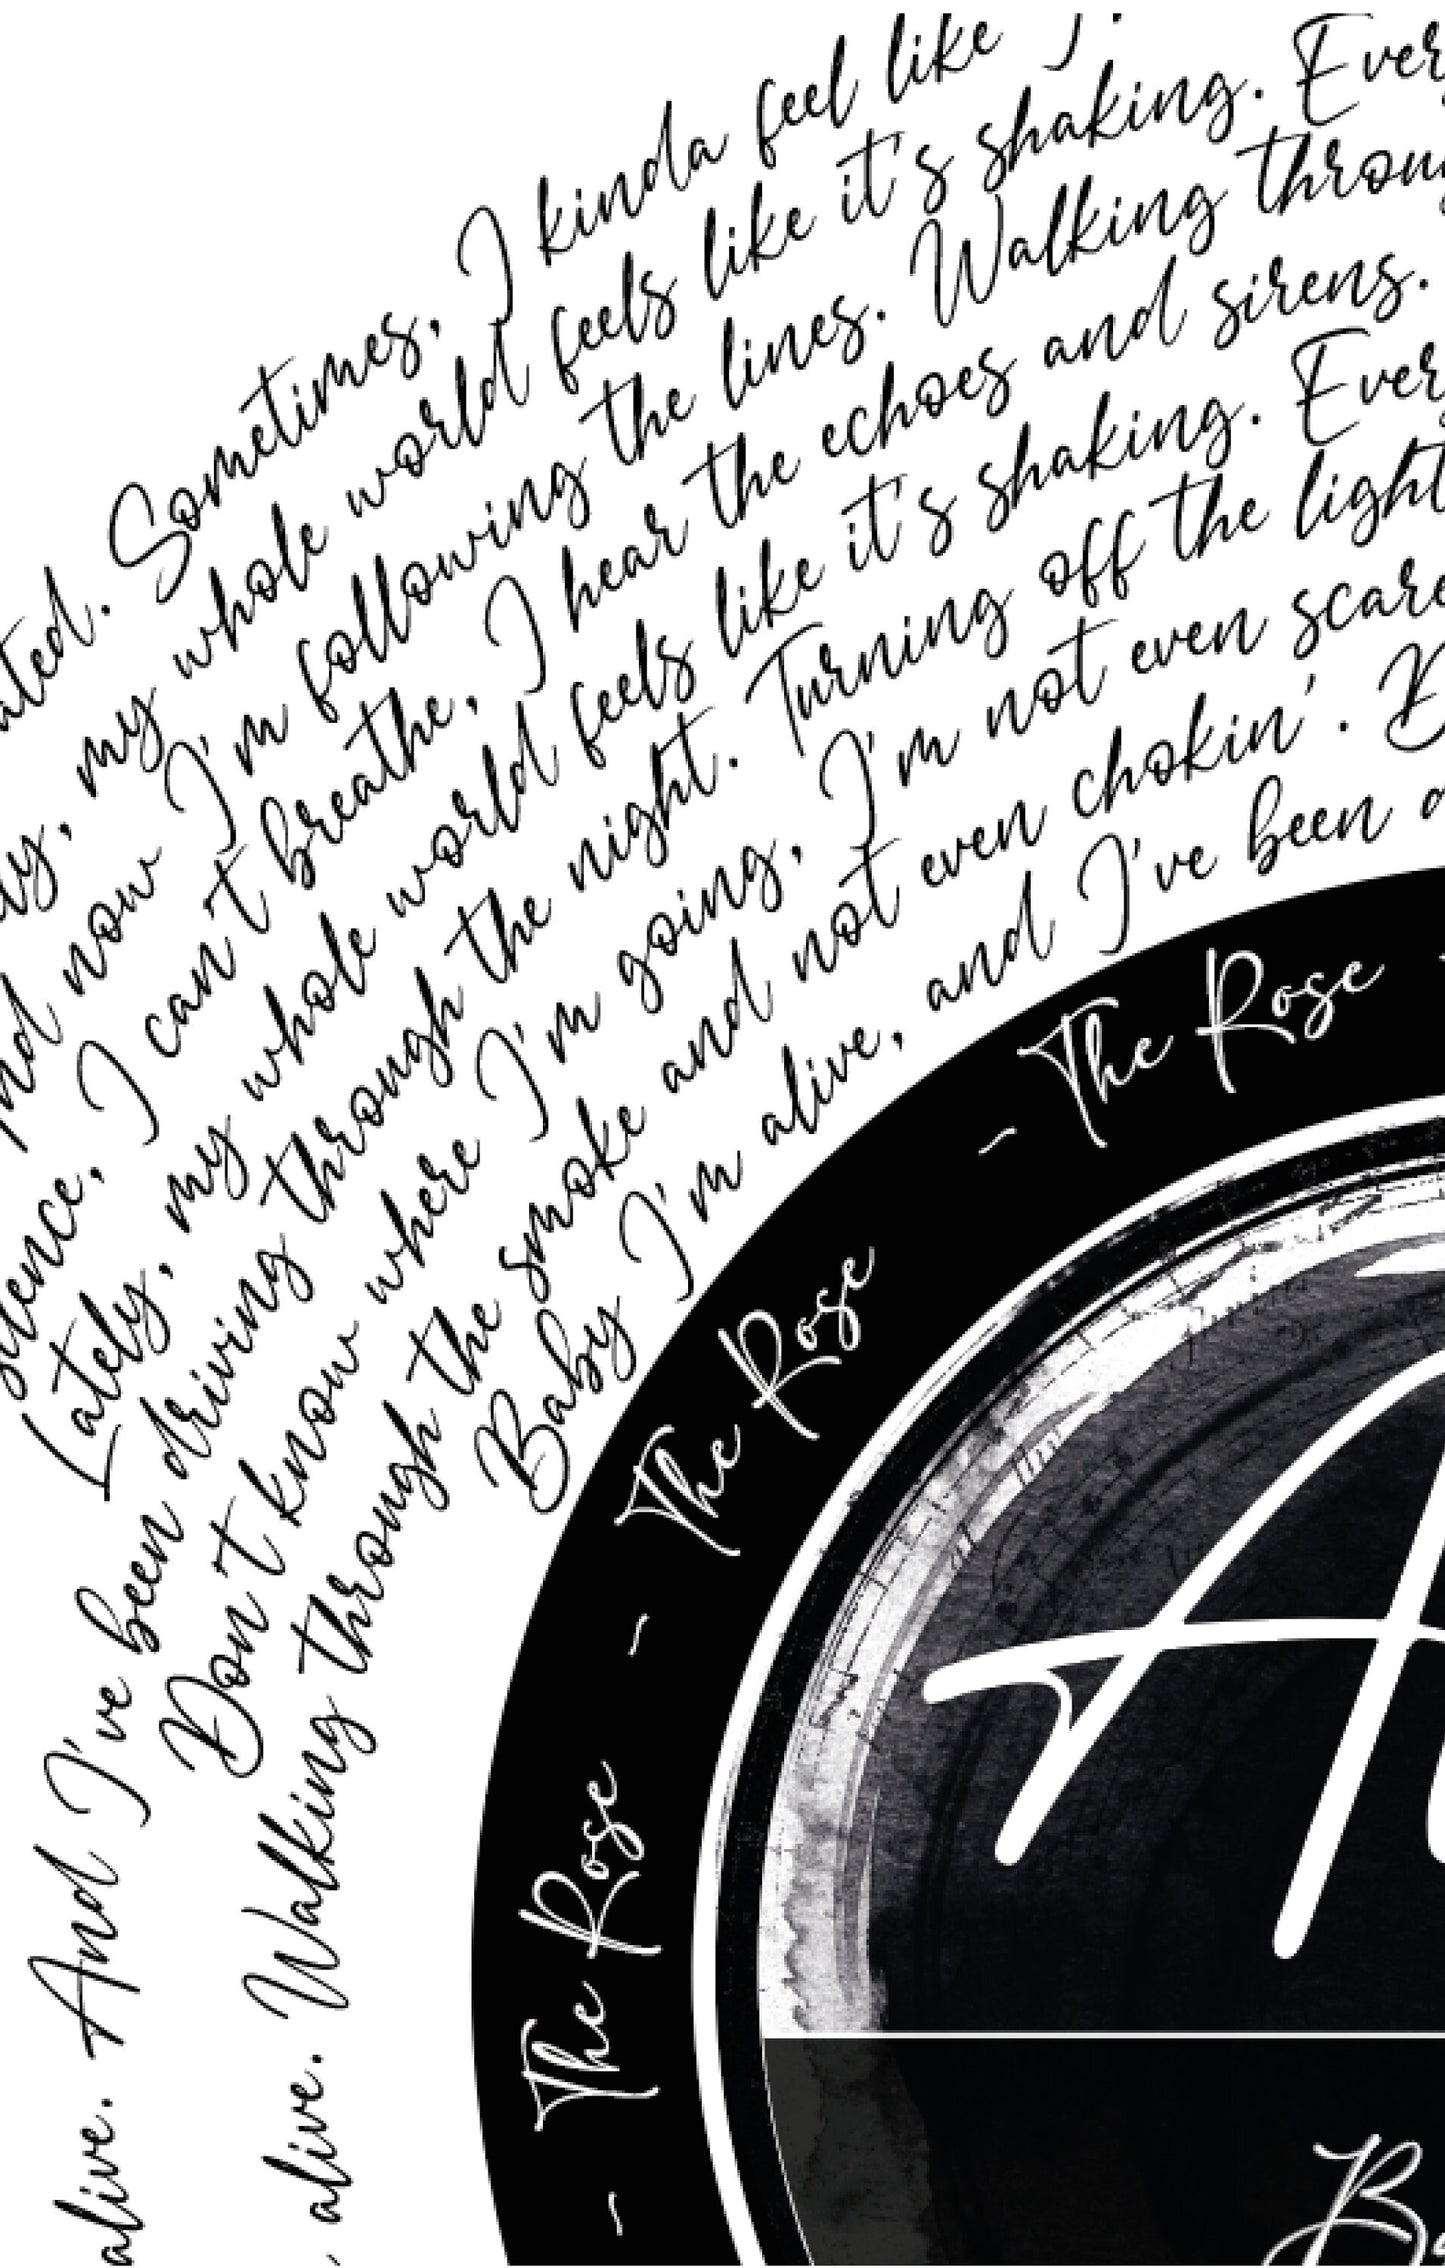 Sometimes, I kinda feel like
my whole world feels like it's shaking.
now I'm following the lines. Walking
silence, I can't breathe, I hear the echoes and sirens.
Lately, my whole world feels like it's shaking.
alive. And I've been driving through the night. Turning off the
Don't know where I'm going, I'm not even
alive. Walking through the smoke and not even chokin'.
Baby I'm alive, and I've been
~ The Rose ~ The Rose ~ The Rose